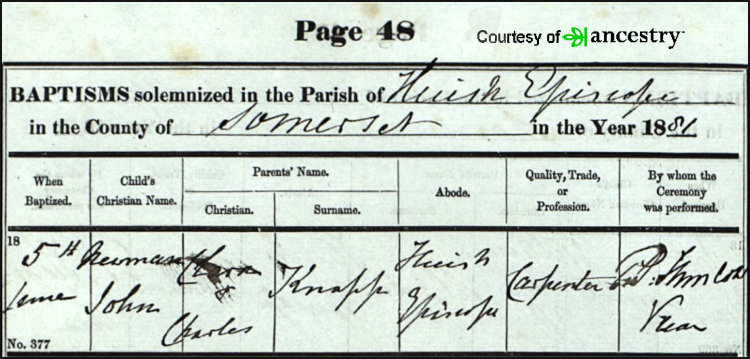 Page 48
Courtesy of ancestry
BAPTISMS solemnized in the Parish of Huish Episcopi
in the County of Somerset in the Year 1881
When Baptized.
Child's Christian Name.
Parents' Name.
Christian.
Surname.
Abode.
Quality, Trade, or Profession.
By whom the Ceremony was performed.
18
5th
June
No. 377
Newman
John
Charles
Knapp
Huish
Episcopi
Carpenter
Vicar